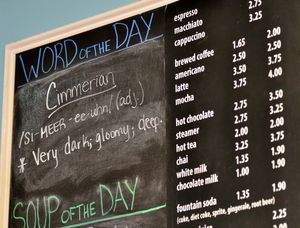 WORD OF THE DAY
Cimmerian
/Si-MEER-ee-uhn/ (adj.)
* Very dark; gloomy; deep.
SOUP OF THE DAY
espresso 2.75
macchiato 3.25
cappuccino
brewed coffee 1.65 2.00
americano 2.50 2.50
latte 3.50 3.75
mocha 3.75 4.00
hot chocolate 2.75 3.50
steamer 2.75 3.25
hot tea 2.00 2.50
chai 2.75 3.25
white milk 1.35 1.90
chocolate milk 1.00 1.90
fountain soda 1.35 1.90
(coke, diet coke, sprite, gingerale, root beer)
2.50